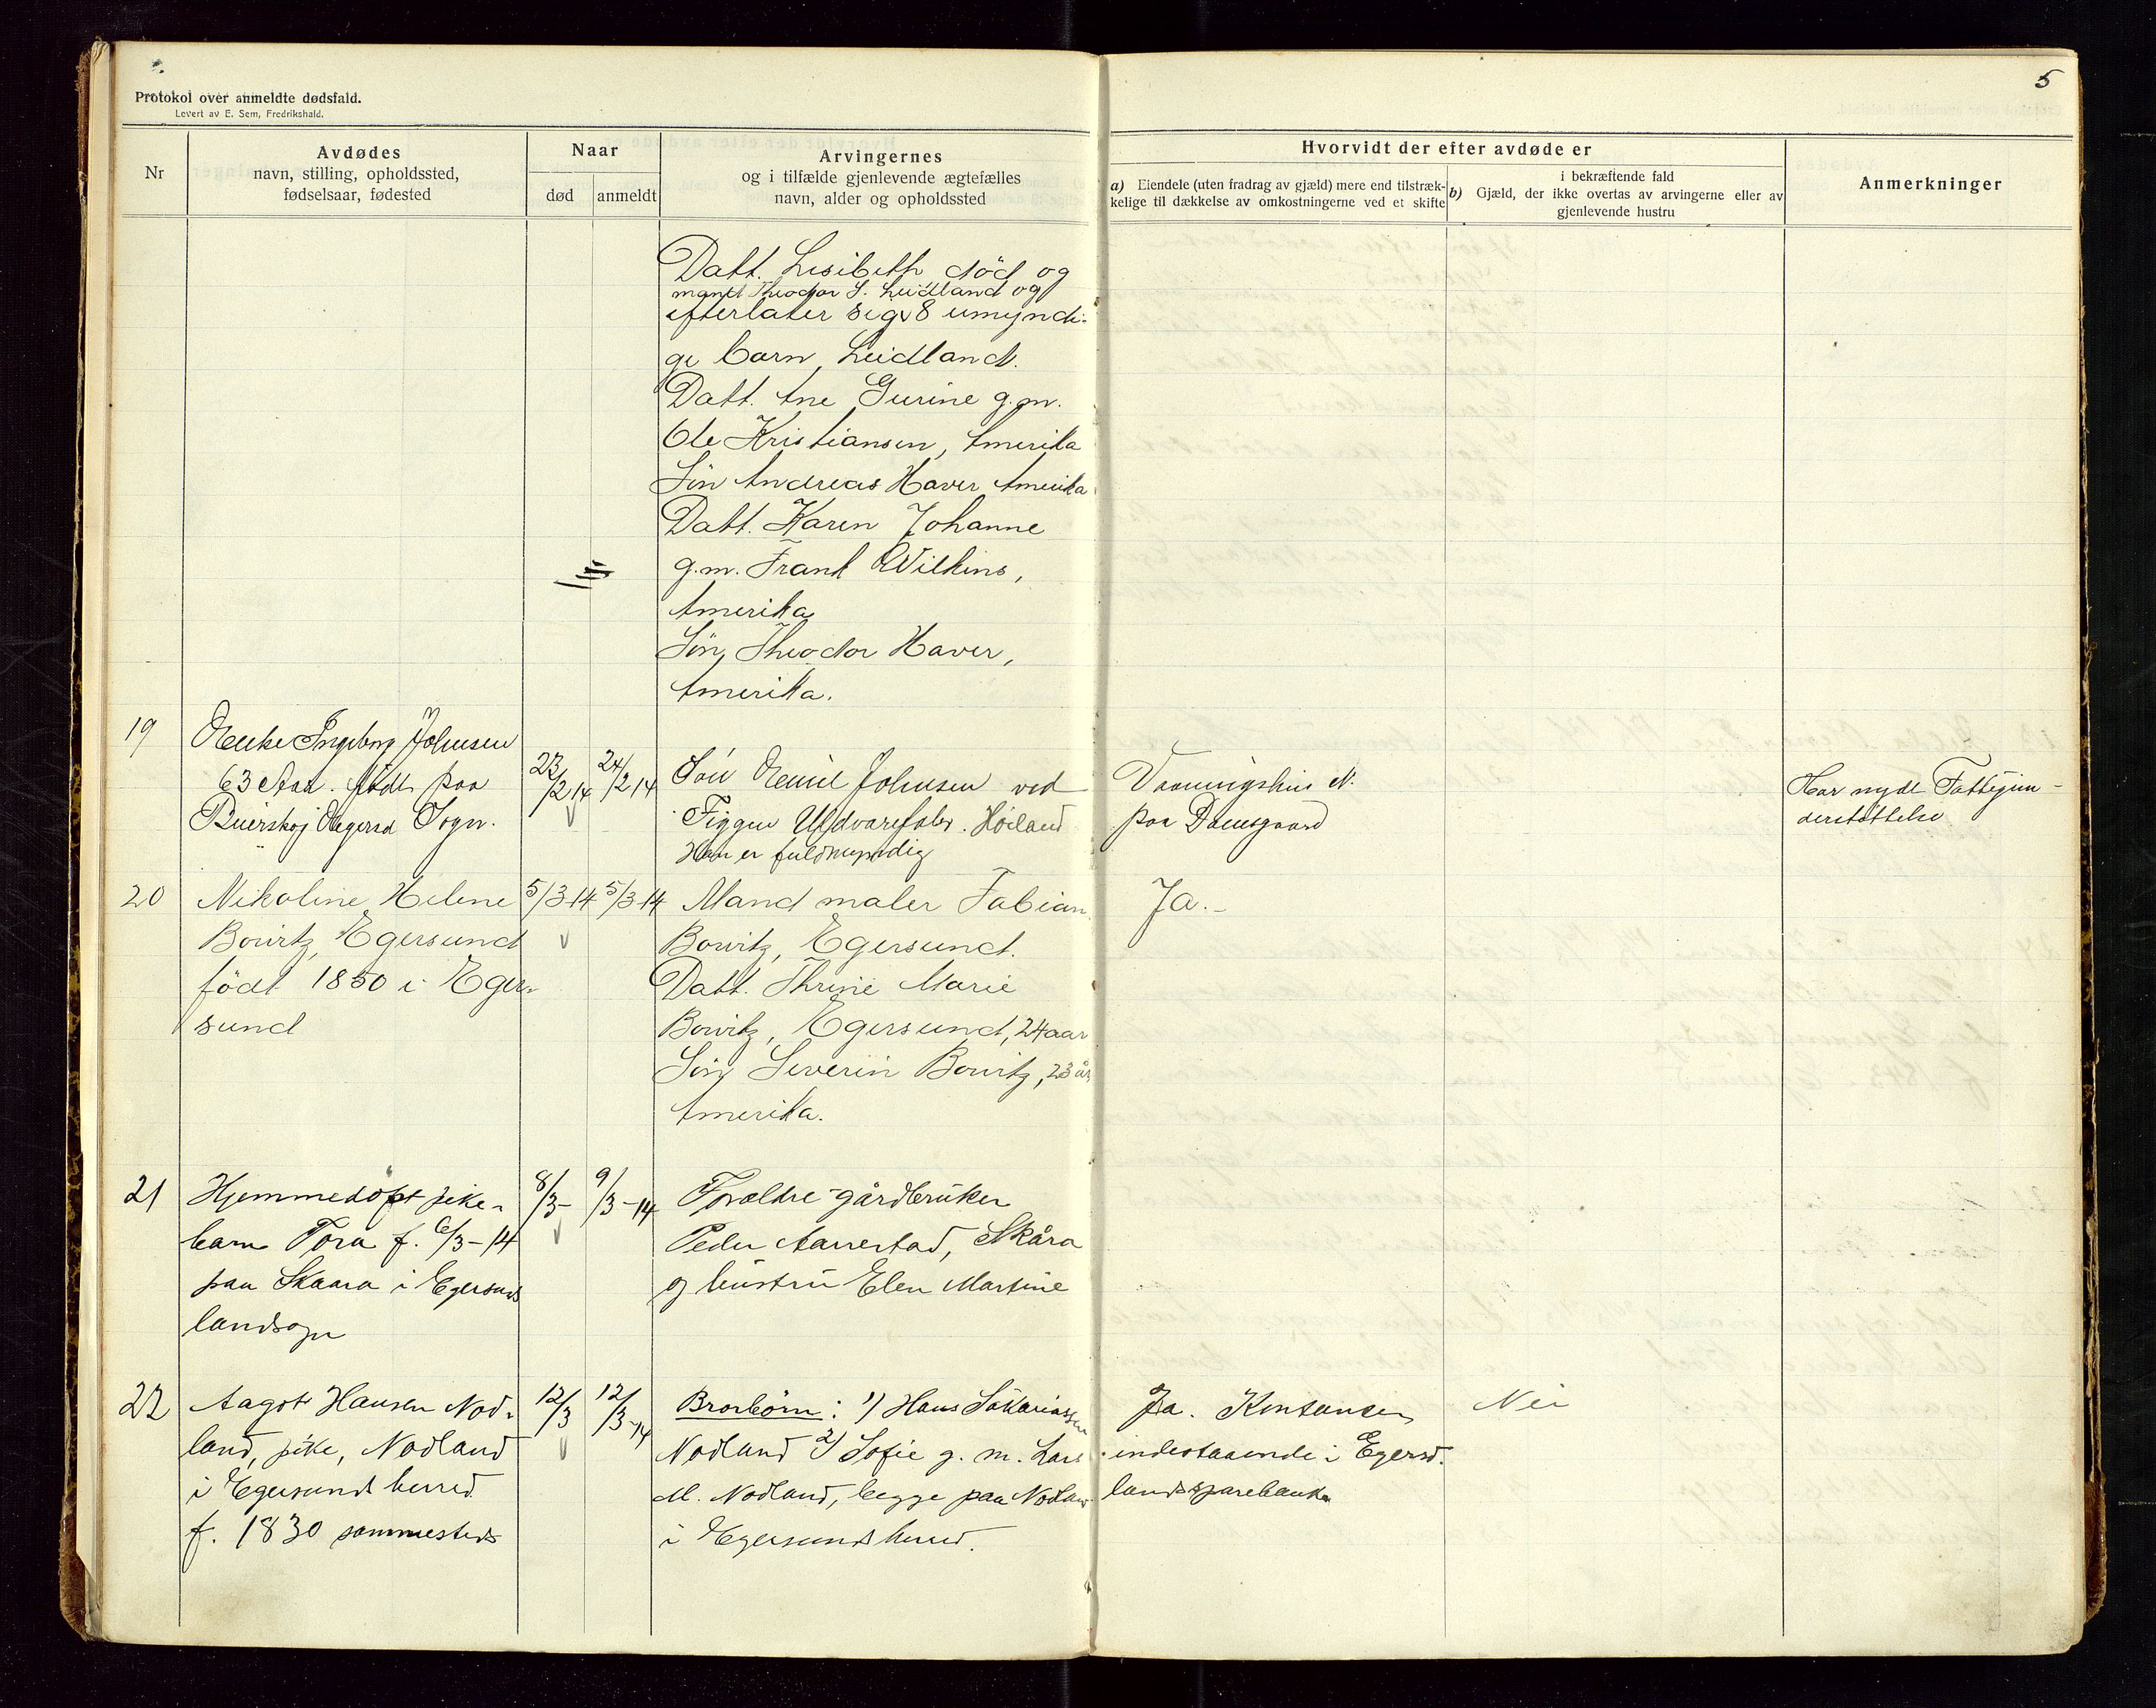 5
Protokol over anmeldte dødsfald.
Levert av E. Sem, Fredrikshald.
Nr
Avdødes
navn, stilling, opholdssted,
fødselsaar, fødested
Naar
død
anmeldt
Arvingernes
og i tilfælde gjenlevende ægtefælles
navn, alder og opholdssted
Hvorvidt der efter avdøde er
a) Eiendele (uten fradrag av gjæld) mere end tilstræk-
kelige til dækkelse av omkostningerne ved et skifte
i bekræftende fald
b) Gjæld, der ikke overtas av arvingerne eller av
gjenlevende hustru
Anmerkninger
Datt. Lisibeth död og
mand Theodor S. Leidland og
efterlater sig 8 umyndi-
ge barn, Leidland.
Datt. Ane Gurine g.m.
Ole Kristiansen, Amerika
Sön Andreas Haver Amerika
Datt. Karen Johanne
g.m. Frank Wilkins,
Amerika
Sön Theodor Haver,
Amerika.
19
Enke Ingeborg Johnsen
63 Aar. födt paa
Egersd Sogn.
23/2 14
24/2 14
Sön Emil Johnsen ved
Figgen Uldvarefabr. Höiland
Han er fuldmyndig
Vaaningshus N.
paa Damsgaard
Har nydt Fattigun-
derstöttelse
20
Nikoline Helene
Bowitz, Egersund
födt 1850 i Eger-
sund
5/3-14
5/3-14
Mand maler Fabian
Bowitz, Egersund.
Datt. Thrine Marie
Bowitz, Egersund, 24 aar
Sön Severin Bowitz, 23 år
Amerika.
Ja.-
21
Hjemmedöpt pike-
barn Tora f. 6/3-14
paa Skaara i Egersunds
landsogn
8/3-
9/3-14
Forældre - gårdbruker
Peder Aarrestad, Skåra
og hustru Elen Martine
22
Aagot Hansen Nod-
land, pike, Nodland
i Egersund herred
f. 1830 sammesteds
12/3
12/3-14
Brorbörn: 1) Hans Sakariassen
Nodland 2) Sofie g. m. Lars
M. Nodland, begge paa Nodland
i Egersunds herred.
Ja. Kontanter
indestaaende i Egersd.
landssparebank
Nei